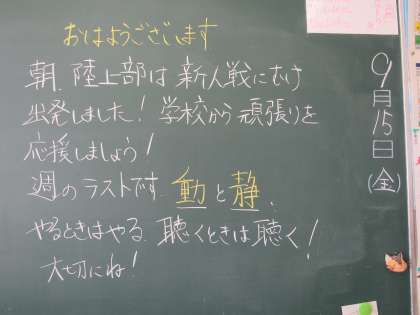 おはようございます
朝、陸上部は新人戦にむけ
出発しました！学校から頑張りを
応援しましょう！
週のラストです。動と静、
やるときはやる。聴くときは聴く！
大切にね！
9月15日(金)